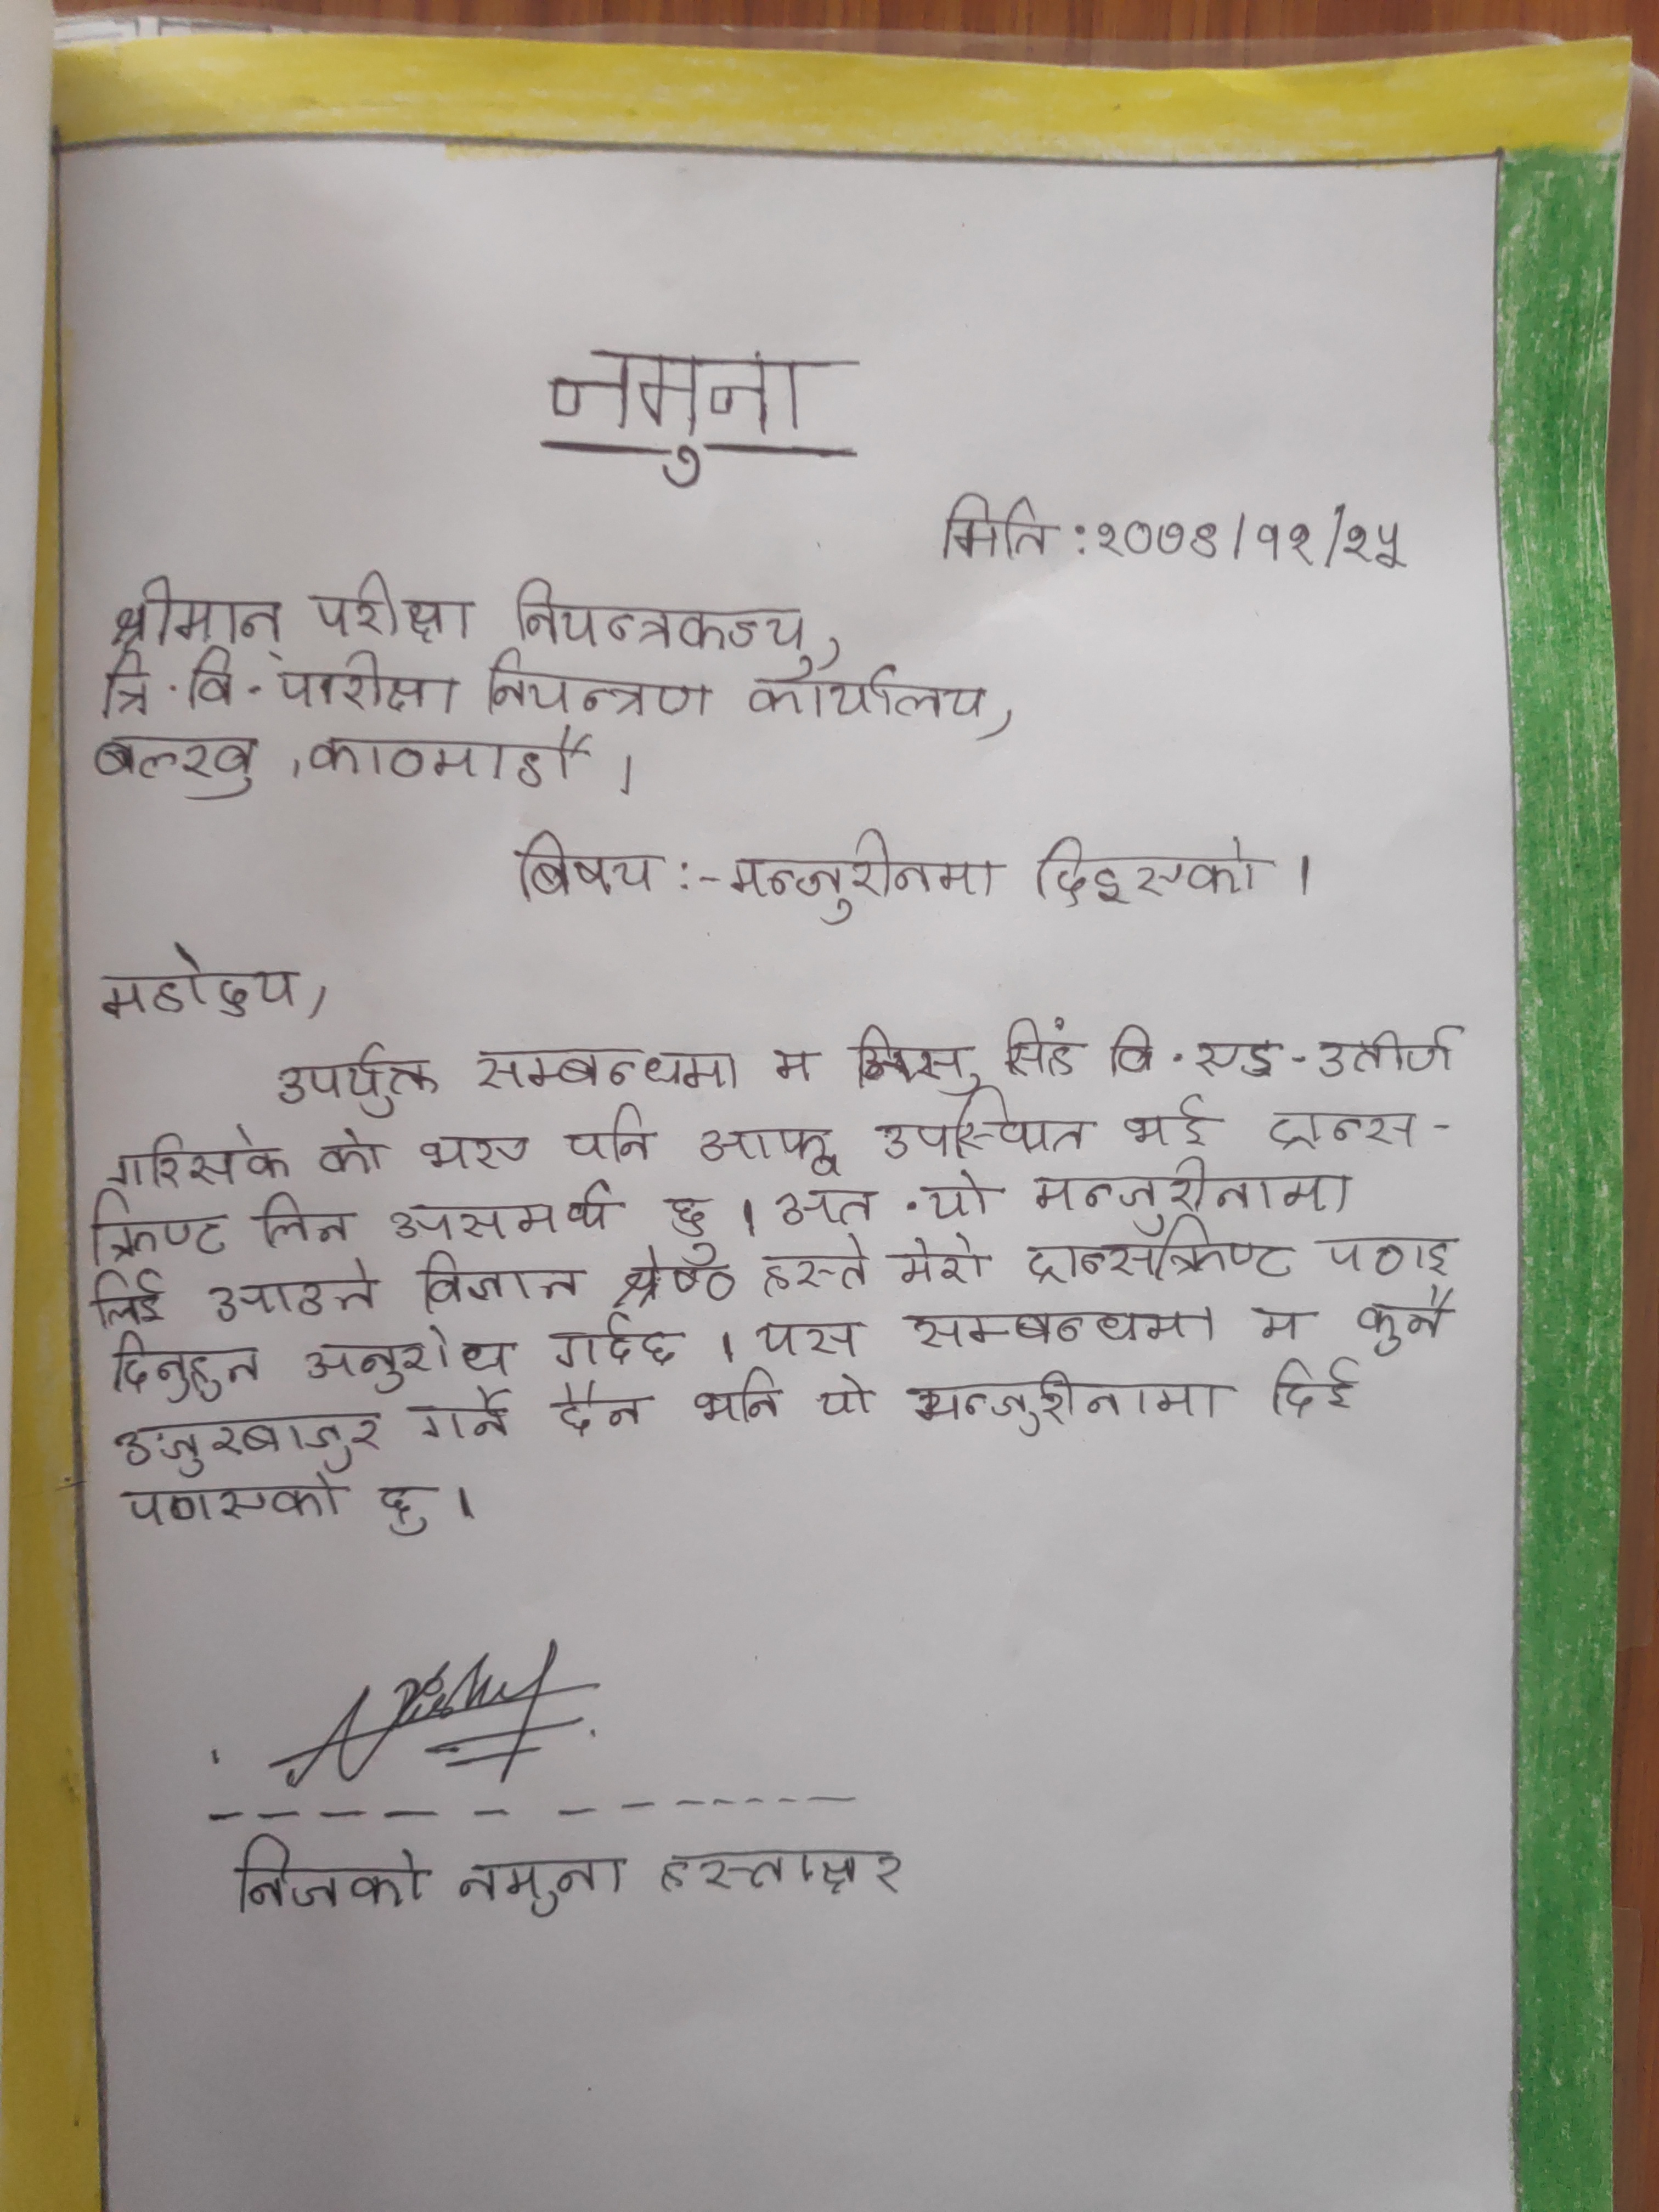 नमुना
मिति : २०७४/१२/२५
श्रीमान् परीक्षा नियन्त्रकज्यु,
त्रि. वि. पारीक्षा नियन्त्रण कार्यालय,
बल्खु, काठमाडौं ।
बिषय :- मन्जुरीनमा दिइएको ।
महोदय,
उपर्युक्त सम्बन्धमा म सिंह वि. एड - उतीर्ण
गरिसके को भए पनि आफू उपस्थित भई ट्रान्स-
क्रिप्ट लिन असमर्थ छु । अत . यो मन्जुरीनामा
लिई आउने विज्ञान श्रेष्ठ हस्ते मेरो ट्रान्सक्रिप्ट पठाइ
दिनुहुन अनुरोध गर्दछ । यस सम्बन्धमा म कुनै
उजुरबाजुर गर्ने छैन भनि यो मन्जुरीनामा दिई
पठाएको छु ।
निजको नमुना हस्ताक्षर